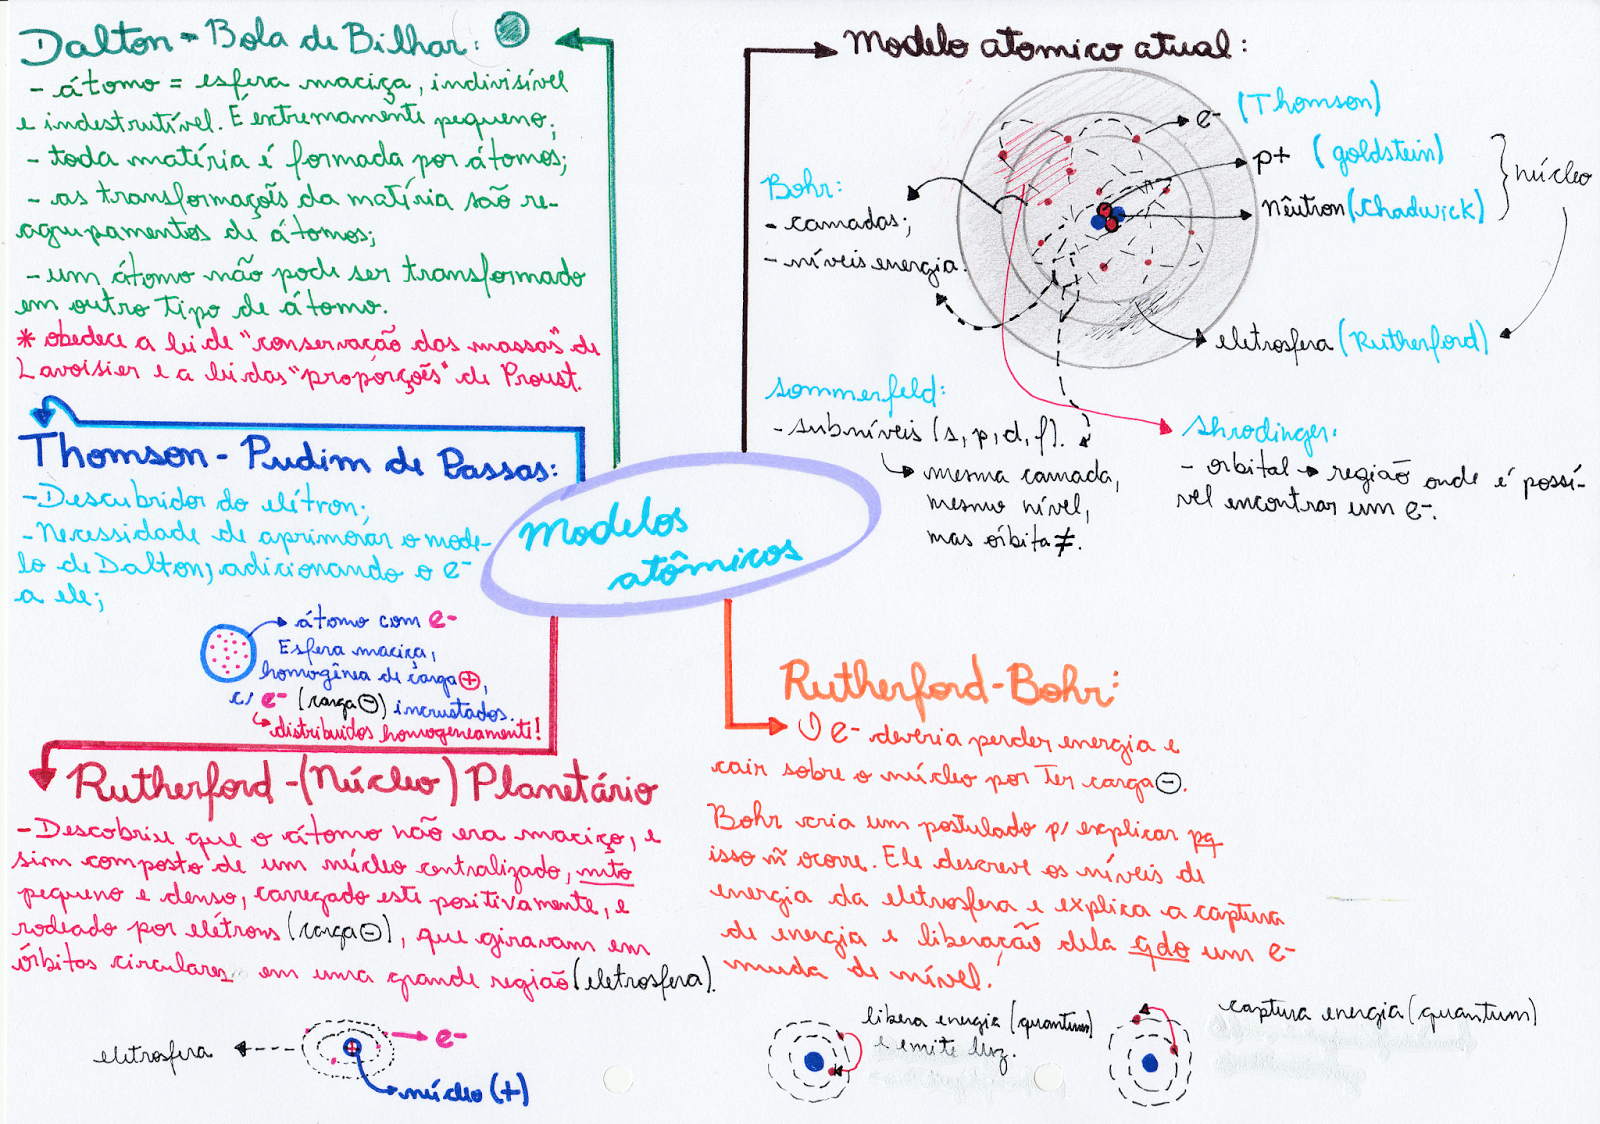 Dalton - Bola de Bilhar:
- átomo = esfera maciça, indivisível
e indestrutível. É extremamente pequeno;
- toda matéria é formada por átomos;
- as transformações da matéria são re-
agrupamentos de átomos;
- um átomo não pode ser transformado
em outro tipo de átomo.
* obedece a lei de "conservação das massas" de
Lavoisier e a lei das "proporções" de Proust.
Thomson - Pudim de Passas:
- Descubridor do elétron;
- Necessidade de aprimorar o mode-
lo de Dalton, adicionando o e-
a ele;
átomo com e-
Esfera maciça,
homogênea de carga +,
c/ e- (carga -) incrustados.
distribuidos homogeneamente!
Rutherford - (Núcleo) Planetário
- Descobriu que o átomo não era maciço, e
sim composto de um núcleo centralizado, mto
pequeno e denso, carregado este positivamente, e
rodeado por elétrons (carga -), que giravam em
órbitas circulares em uma grande região (eletrosfera).
eletrosfera
e-
núcleo (+)
Modelos
atômicos
Modelo atomico atual:
e- (Thomson)
p+ (goldstein)
nêutron (Chadwick)
núcleo
eletrosfera (Rutherford)
Bohr:
- camadas;
- níveis energia.
Sommerfeld:
- subníveis (s, p, d, f).
mesma camada,
mesmo nível,
mas órbita ≠.
Shrodinger:
- orbital → região onde é possí-
vel encontrar um e-.
Rutherford-Bohr:
e- deveria perder energia e
cair sobre o núcleo por ter carga -.
Bohr cria um postulado p/ explicar pq
isso ñ ocorre. Ele descreve os níveis de
energia da eletrosfera e explica a captura
de energia e liberação dela qdo um e-
muda de nível.
libera energia (quantum)
e emite luz.
captura energia (quantum)